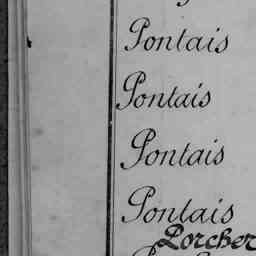 Pontais
Pontais
Pontais
Pontais
Porcher